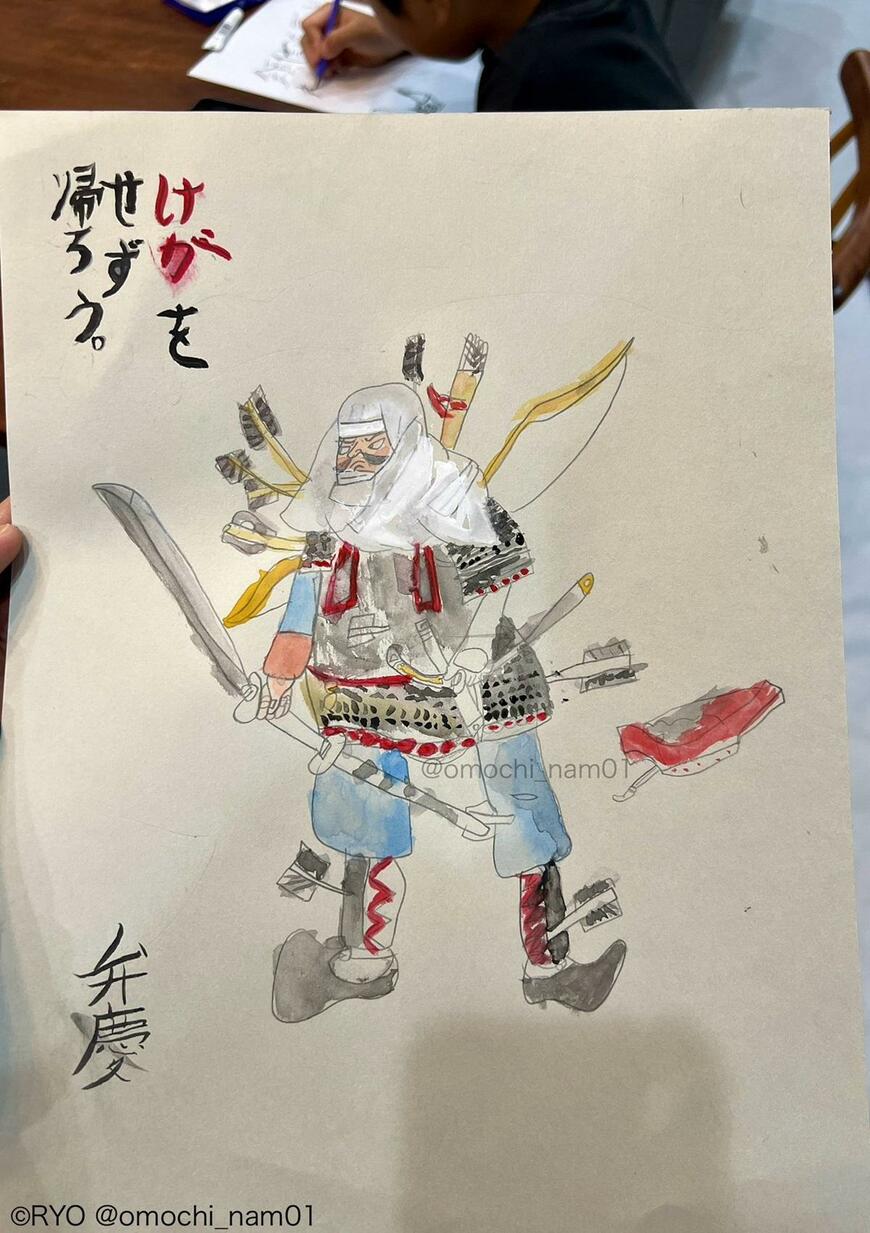 けがを
せずう
帰ろう。
弁慶
@omochi_nam01
©RYO @omochi_nam01